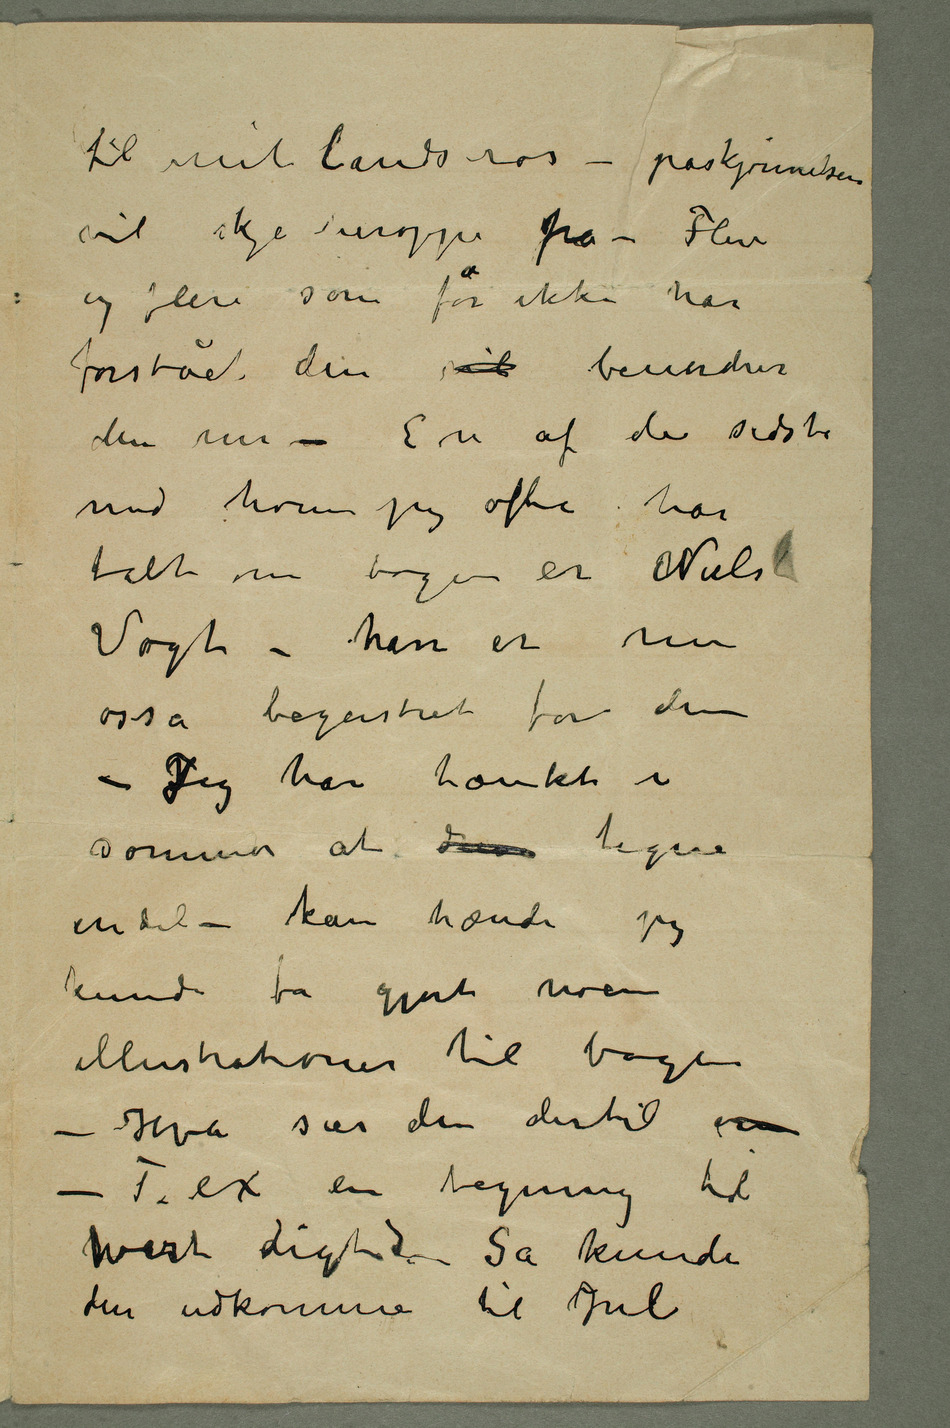 til mit lands ros – påskjønnelsen
vil skje neroppe fra – Flere
og flere som før ikke har
forstået den vil beundrer
den nu – En af de sidste
med hvem jeg ofte har
talt om bogen er Niels
Vogt – han er nu
ossa begeistret for den
– Jeg har tænkt i
sommer at tegne
endel – kan hænde jeg
kunde fa gjort noen
illustrationer til bogen
– Hva sier du dertil
– T. ex en tegning til
hvert digt – Sa kunde
den udkomme til Jul